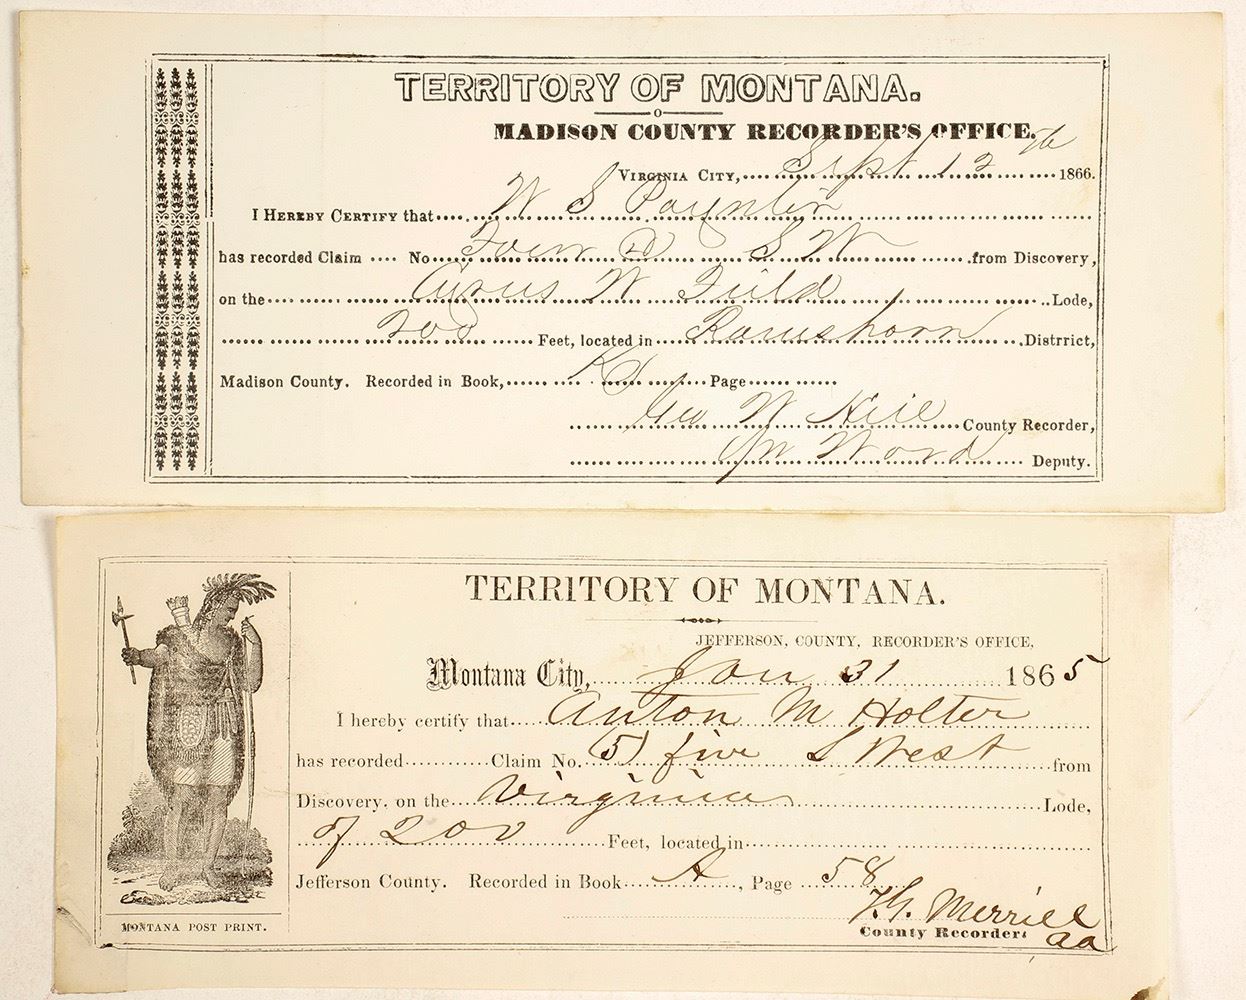 TERRITORY OF MONTANA.
MADISON COUNTY RECORDER'S OFFICE.
VIRGINIA CITY, Sept 12th 1866.
I HEREBY CERTIFY that W S Paynter
has recorded Claim No Four 4 S W from Discovery,
on the Cyrus W Field Lode,
200 Feet, located in Ramshorn Distrrict,
Madison County. Recorded in Book, K Page
Geo W Hill County Recorder,
Jn Word Deputy.
TERRITORY OF MONTANA.
JEFFERSON, COUNTY, RECORDER'S OFFICE,
Montana City, Jan 31 1865
I hereby certify that Anton M Holter
has recorded Claim No. (5) five S West from
Discovery, on the Virginia Lode,
of 200 Feet, located in
Jefferson County. Recorded in Book A, Page 58
F. G. Merrill
County Recorder:
MONTANA POST PRINT.